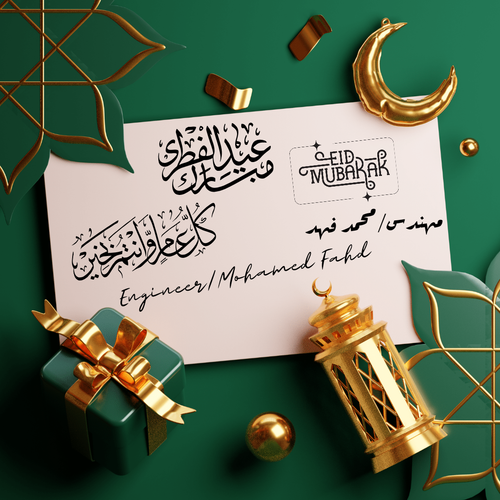 عيد الفطر
مبارك
EID
MUBARAK
كل عام وأنتم بخير
مهندس/محمد فهد
Engineer/Mohamed Fahd